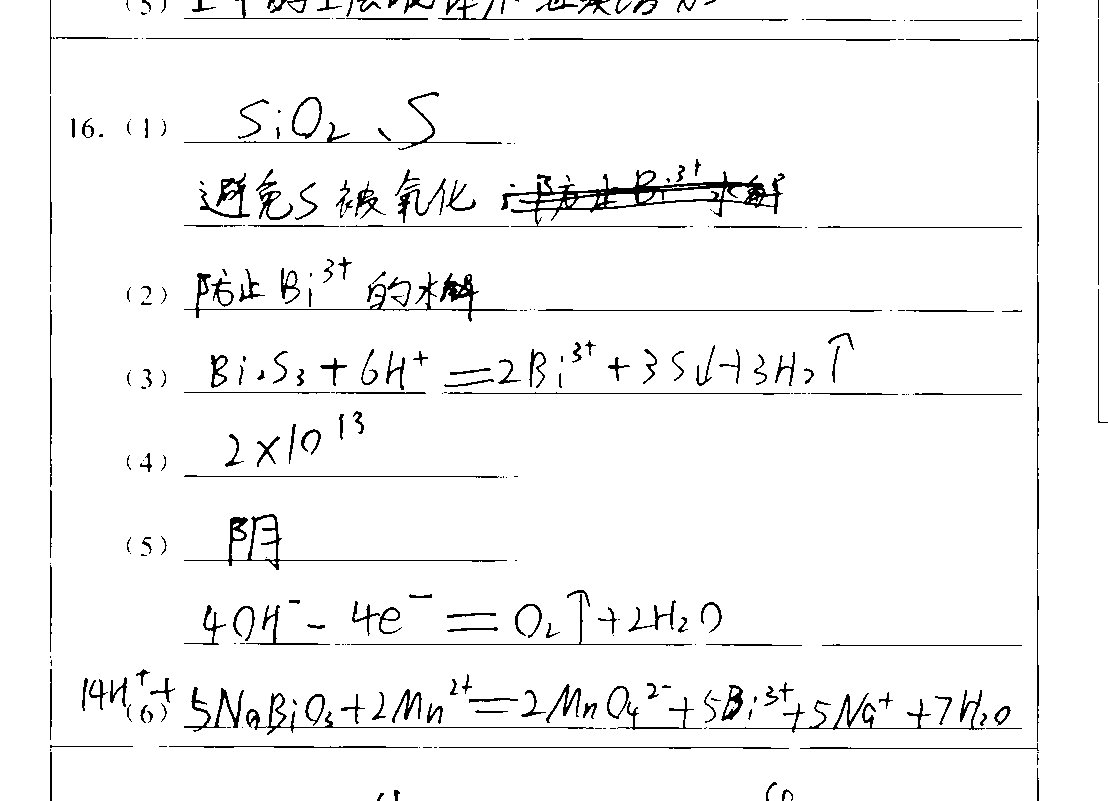 16. (1) SiO₂、S
避免S被氧化
(2) 防止Bi³⁺的水解
(3) Bi₂S₃ + 6H⁺ = 2Bi³⁺ + 3S↓ + 3H₂↑
(4) 2×10¹³
(5) 阴
4OH⁻ - 4e⁻ = O₂↑ + 2H₂O
14H⁺ +
(6) 5NaBiO₃ + 2Mn²⁺ = 2MnO₄²⁻ + 5Bi³⁺ + 5Na⁺ + 7H₂O